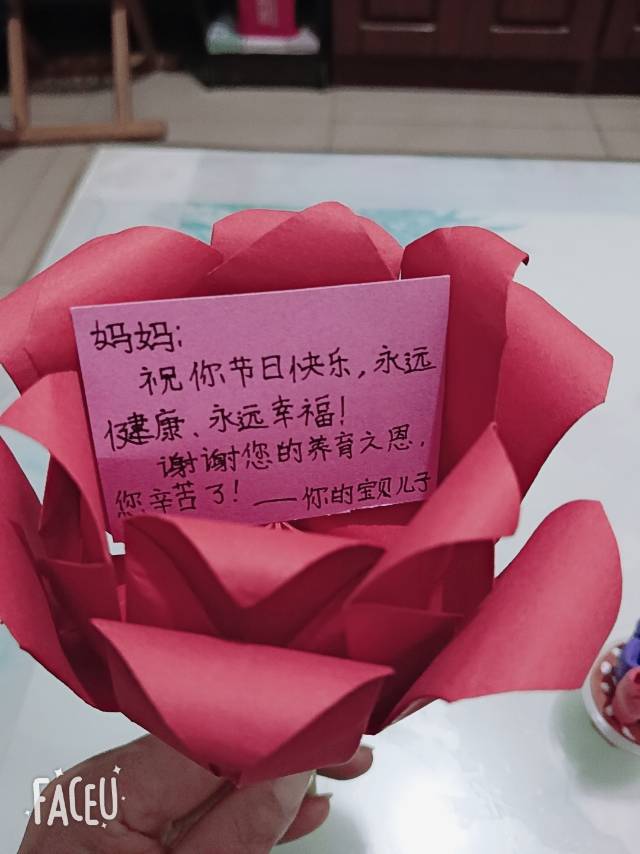 妈妈:
祝你节日快乐,永远
健康、永远幸福!
谢谢您的养育之恩,
您辛苦了!——你的宝贝儿子
FACEU